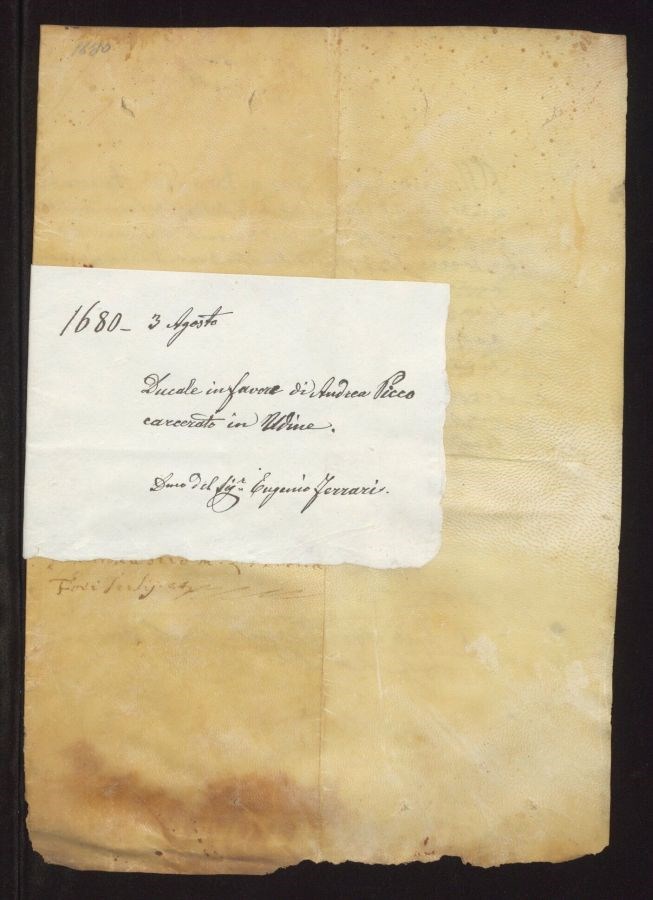 1680
1680 - 3 Agosto
Ducale in favore di Andrea Picco
carcerato in Udine.
Dono del Sigr. Eugenio Ferrari.